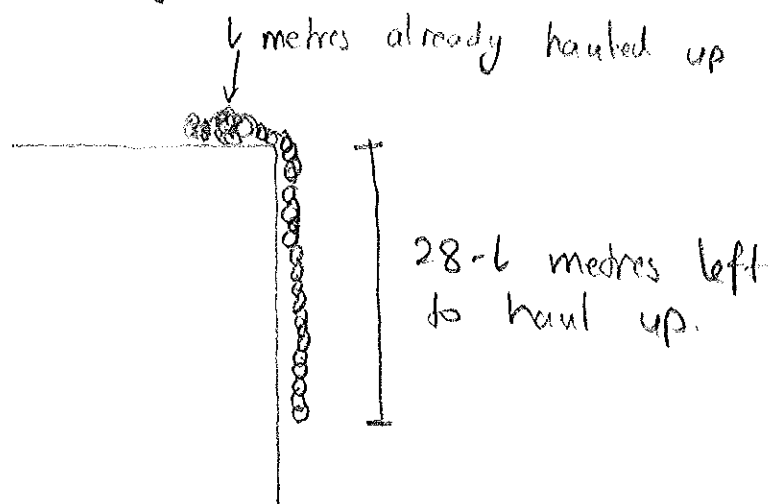 l metres already hauled up
28-l metres left
to haul up.